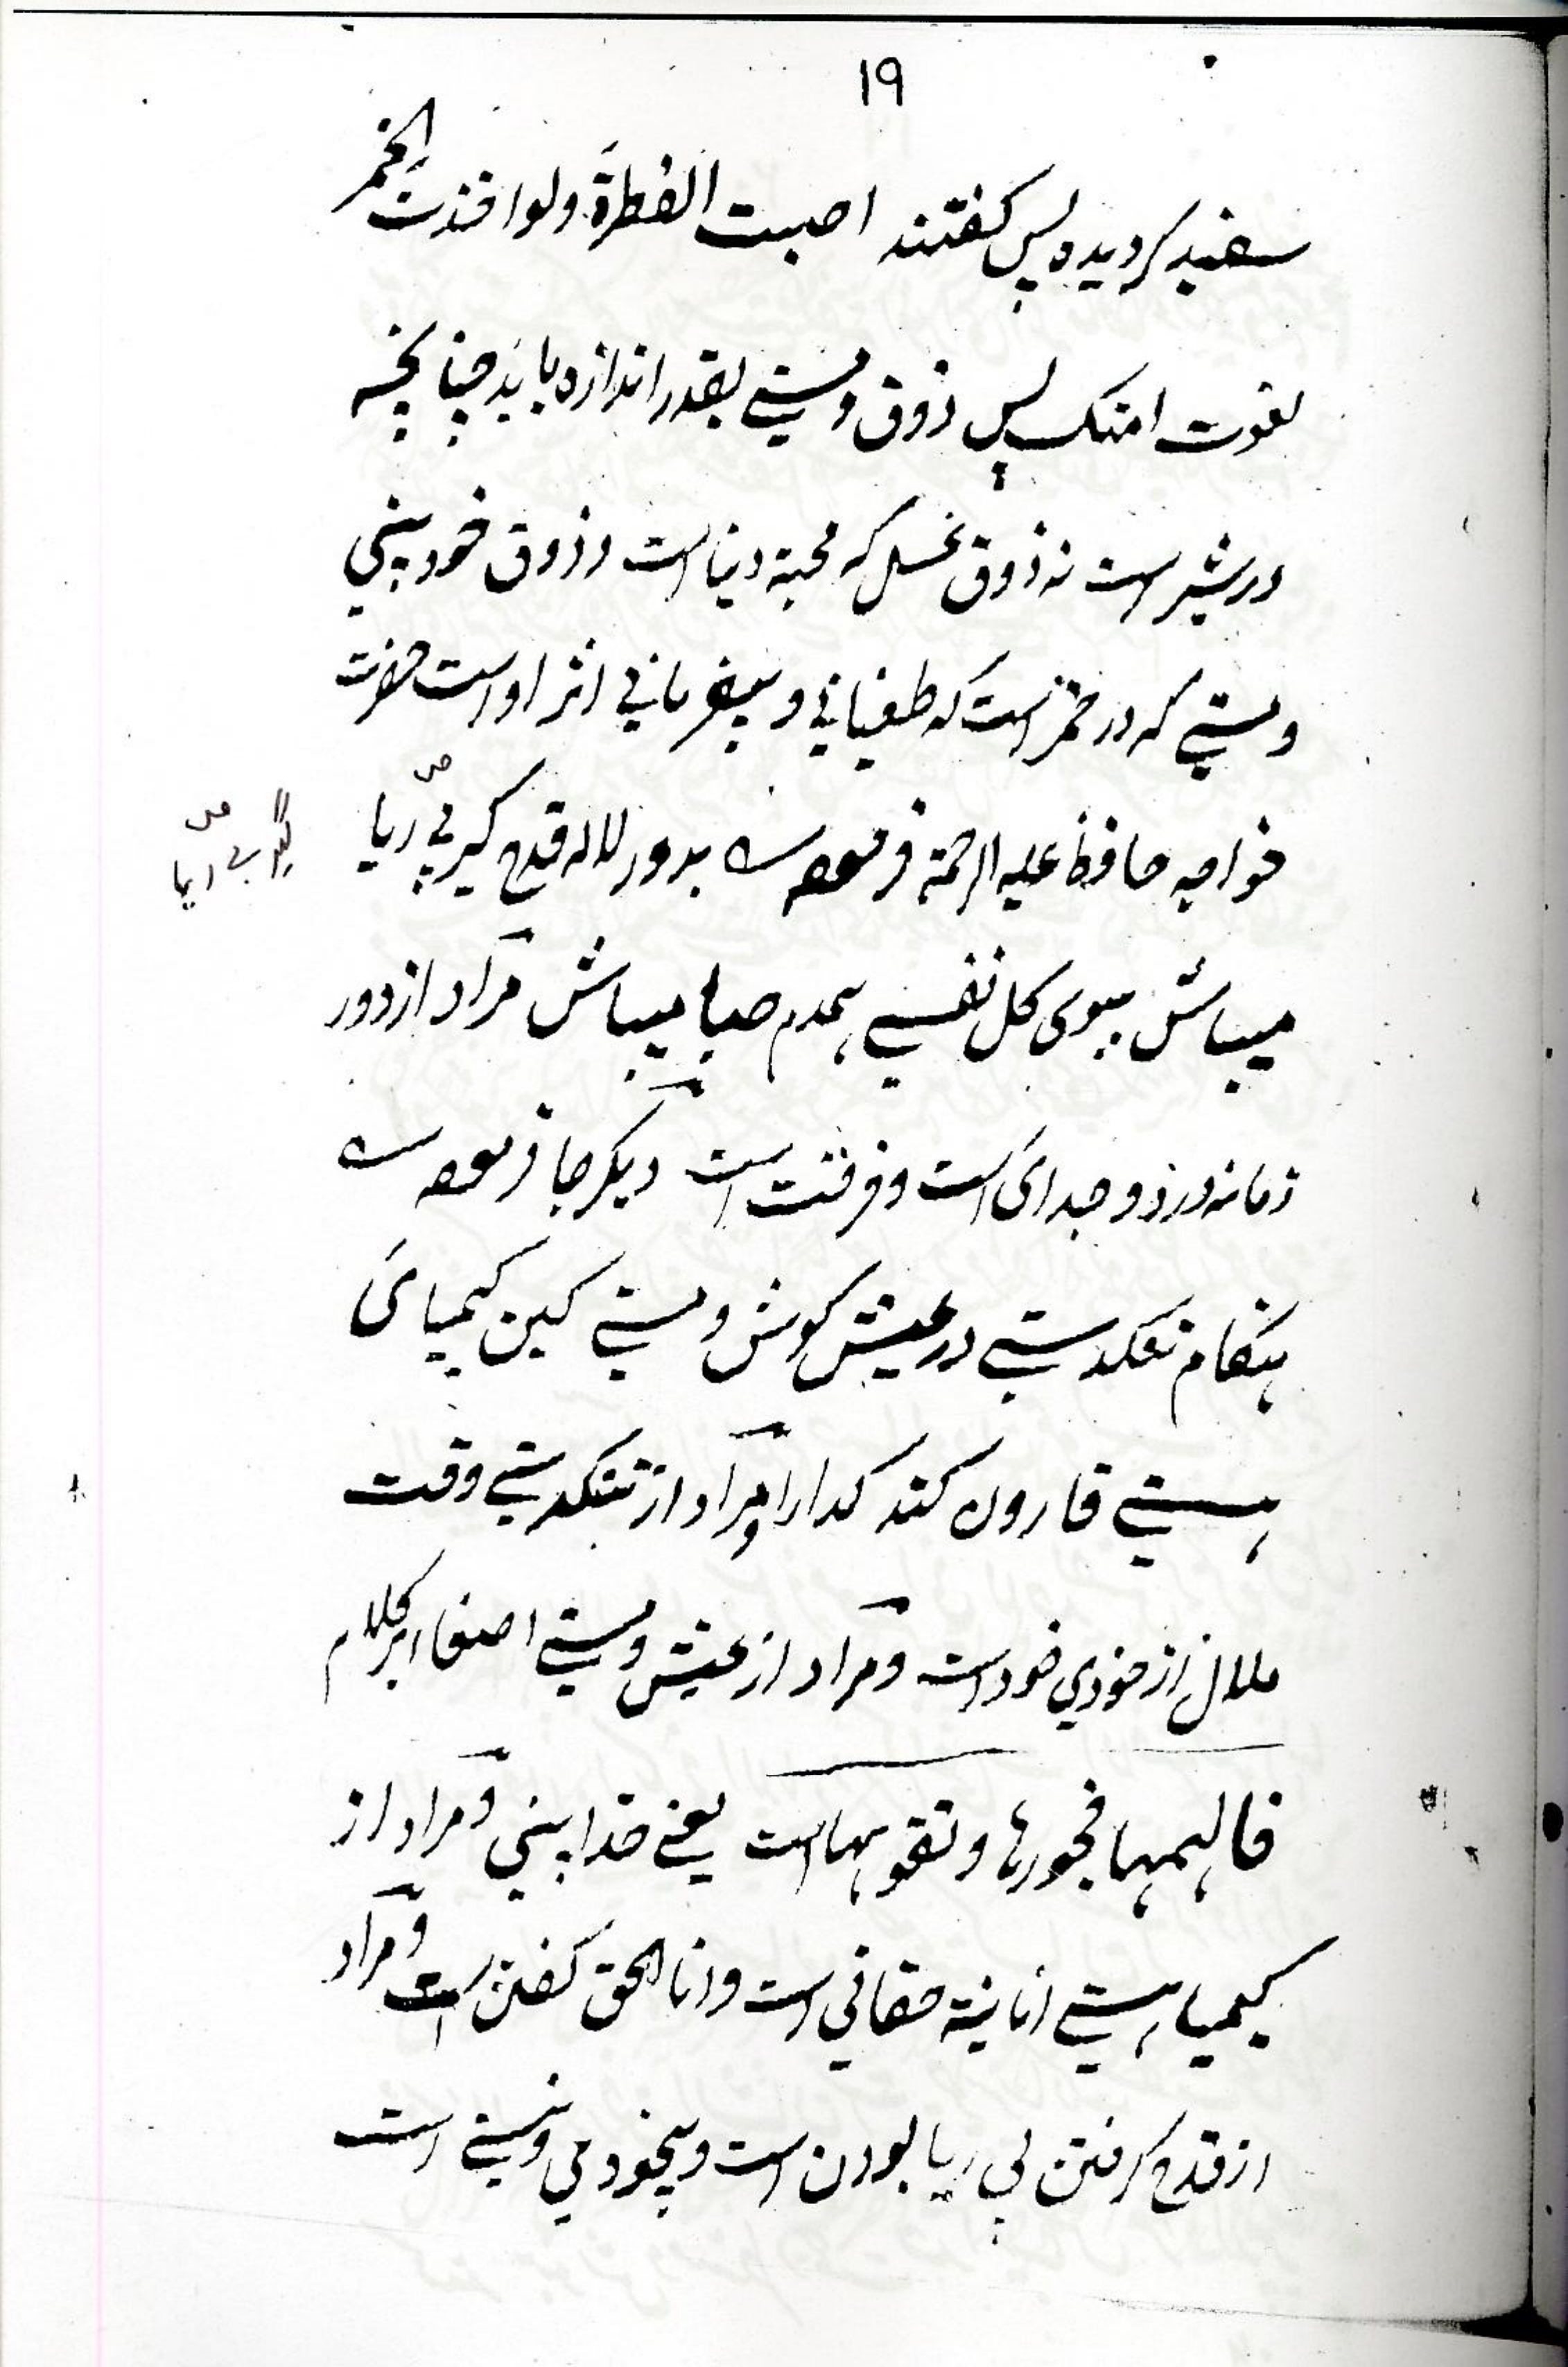 ۱۹
سفید کردیده پس کفتند اصبت الفطرة ولو اخذت الخمر
لغوت امتک پس ذوق و مستی بقدر اندازه باید چنانچه
در شیر است نه ذوق عسل که محبة دنیا است و ذوق خود بینی
و مستی که در خمر است که طغیانی و بیفرمانی اثر او است حضرت
خواجه حافظ علیه الرحمة فرموده بدور لاله قدح کیر بی ریا
گیر بی ریا
میباش ببوی کل نفسی همدم صبا میباش مراد از دور
زمانه درد و جدائی است و فرقت است دیکر جا فرموده
هنکام تنکدستی در عیش کوش و مستی کین کیمیائی
هستی قارون کند کدا را و مراد از تنکدستی وقت
ملال از خودی خود است و مراد از عیش و مستی اصغا بر کلام
فالهمها فجورها و تقویها است یعنی خدا بینی و مراد از
کیمیاء هستی انانیة حقانی است و انا الحق کفتن است و مراد
از قدح کرفتن بی ریا بودن است و بیخودی و نیستی است